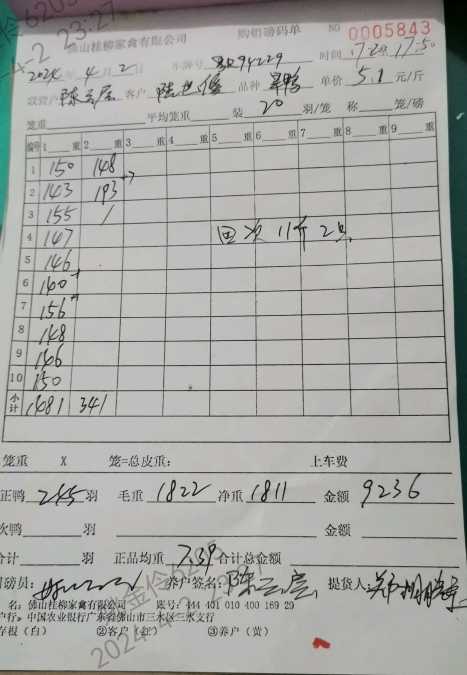 佛山桂柳家禽有限公司 购销磅单 NO 0005843
2024年4月2日 车牌号 时间 17:50
客户 品种 单价 5.1 元/斤
笼重 平均笼重 装 20 羽/笼 称 笼/磅
编号 1 重 2 重 3 重 4 重 5 重 6 重 7 重 8 重 9 重
1 150 148
2 143 193
3 155 /
4 147 回次 11斤 2只
5 146
6 140
7 156
8 148
9 146
10 150
小计 1481 341
笼重 X 笼=总皮重: 上车费
正鸭 245 羽 毛重 1822 净重 1811 金额 9236
次鸭 羽 金额
合计 羽 正品均重 7.39 合计总金额
司磅员: 养户签名: 提货人:
名: 佛山桂柳家禽有限公司 账号: 444 401 010 400 169 29
户行: 中国农业银行广东省佛山市三水区三水支行
存根(白) ②客户(红) ③养户(黄)